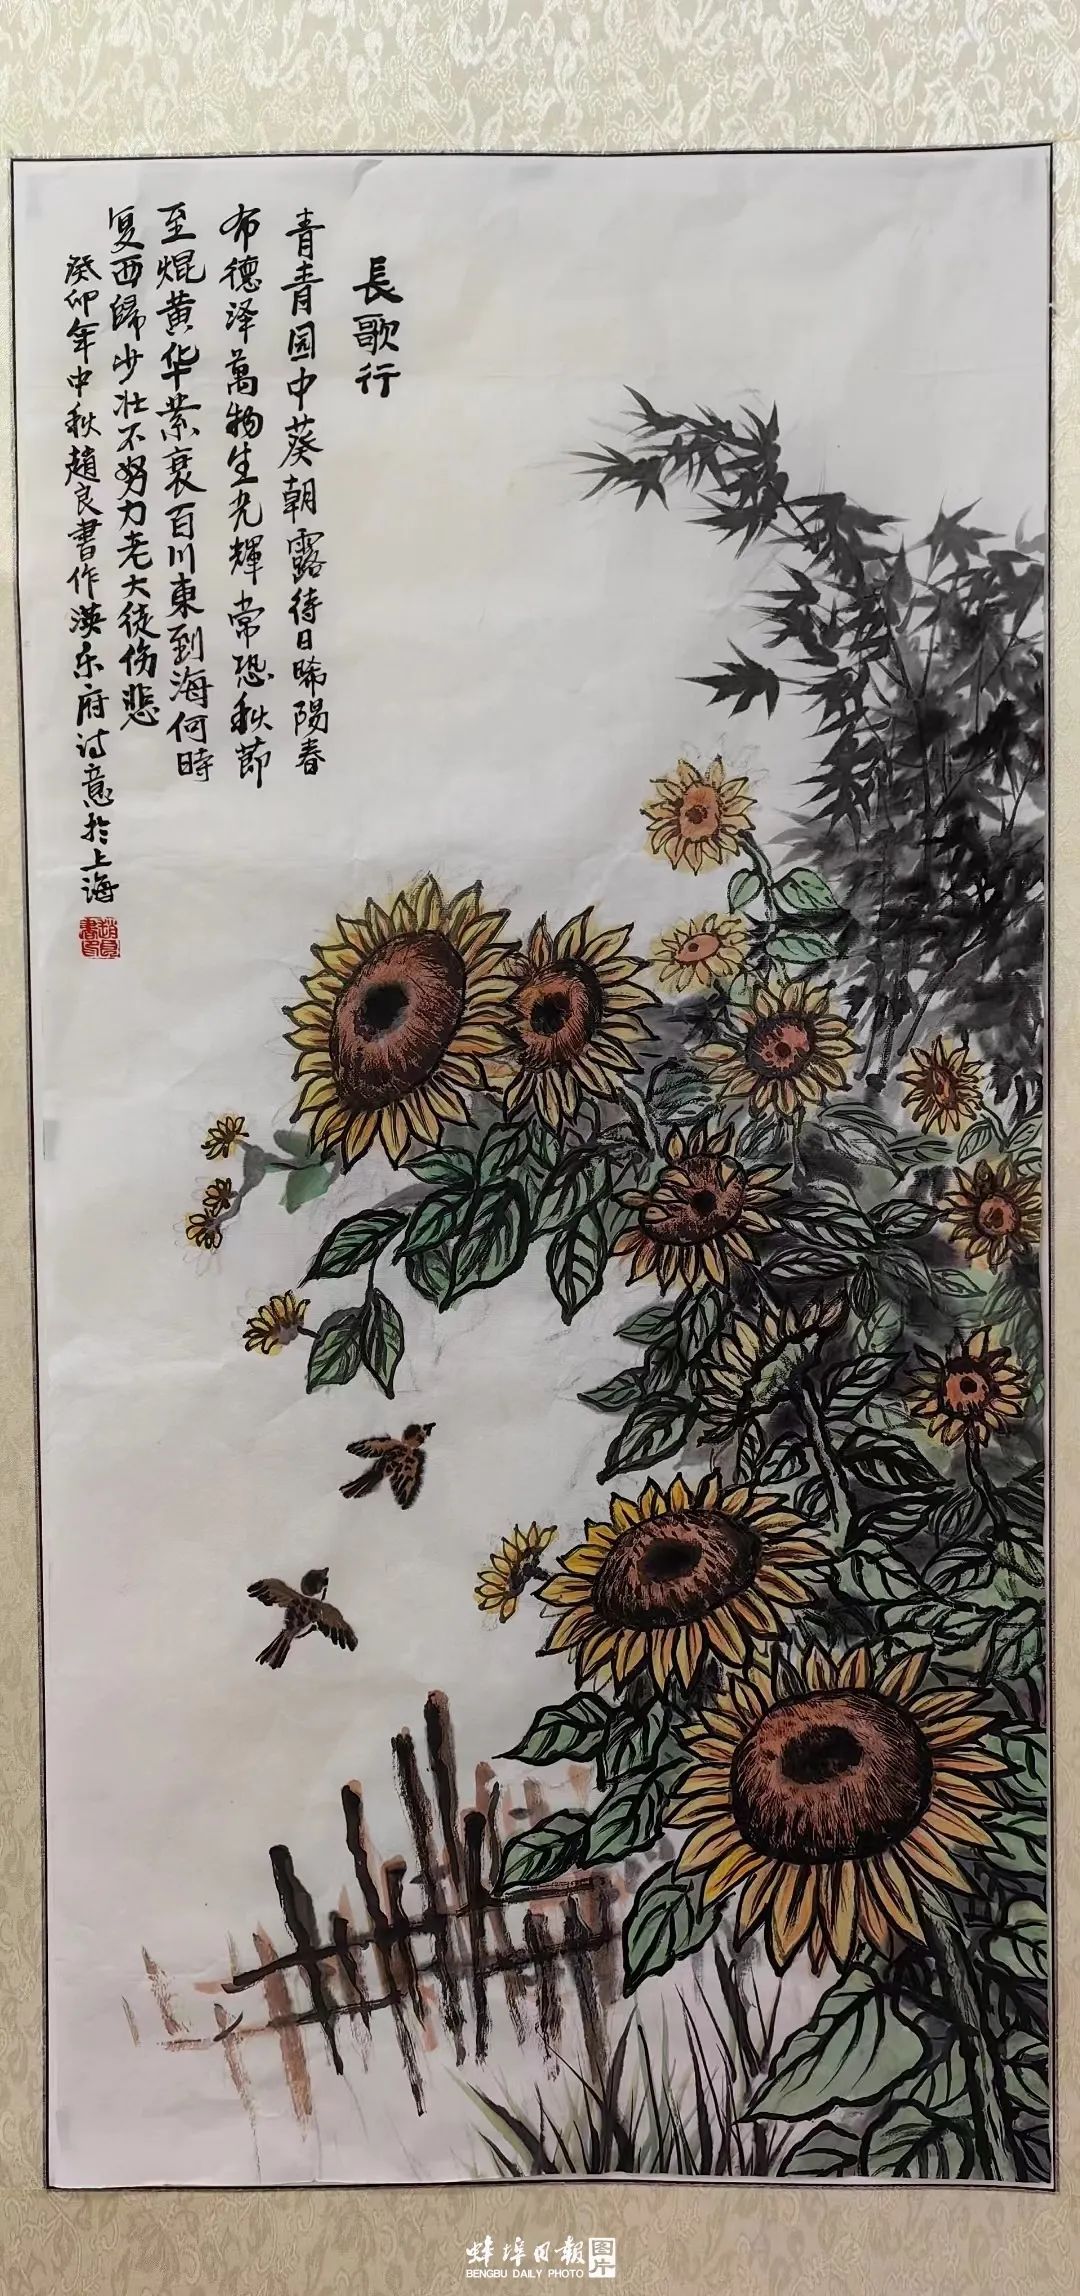 長歌行
青青园中葵朝露待日晞陽春
布德泽萬物生光輝常恐秋節
至焜黄华葉衰百川東到海何時
复西歸少壮不努力老大徒伤悲
癸卯年中秋趙良書作漢乐府诗意於上海
蚌埠日報
图片
BENGBU DAILY PHOTO